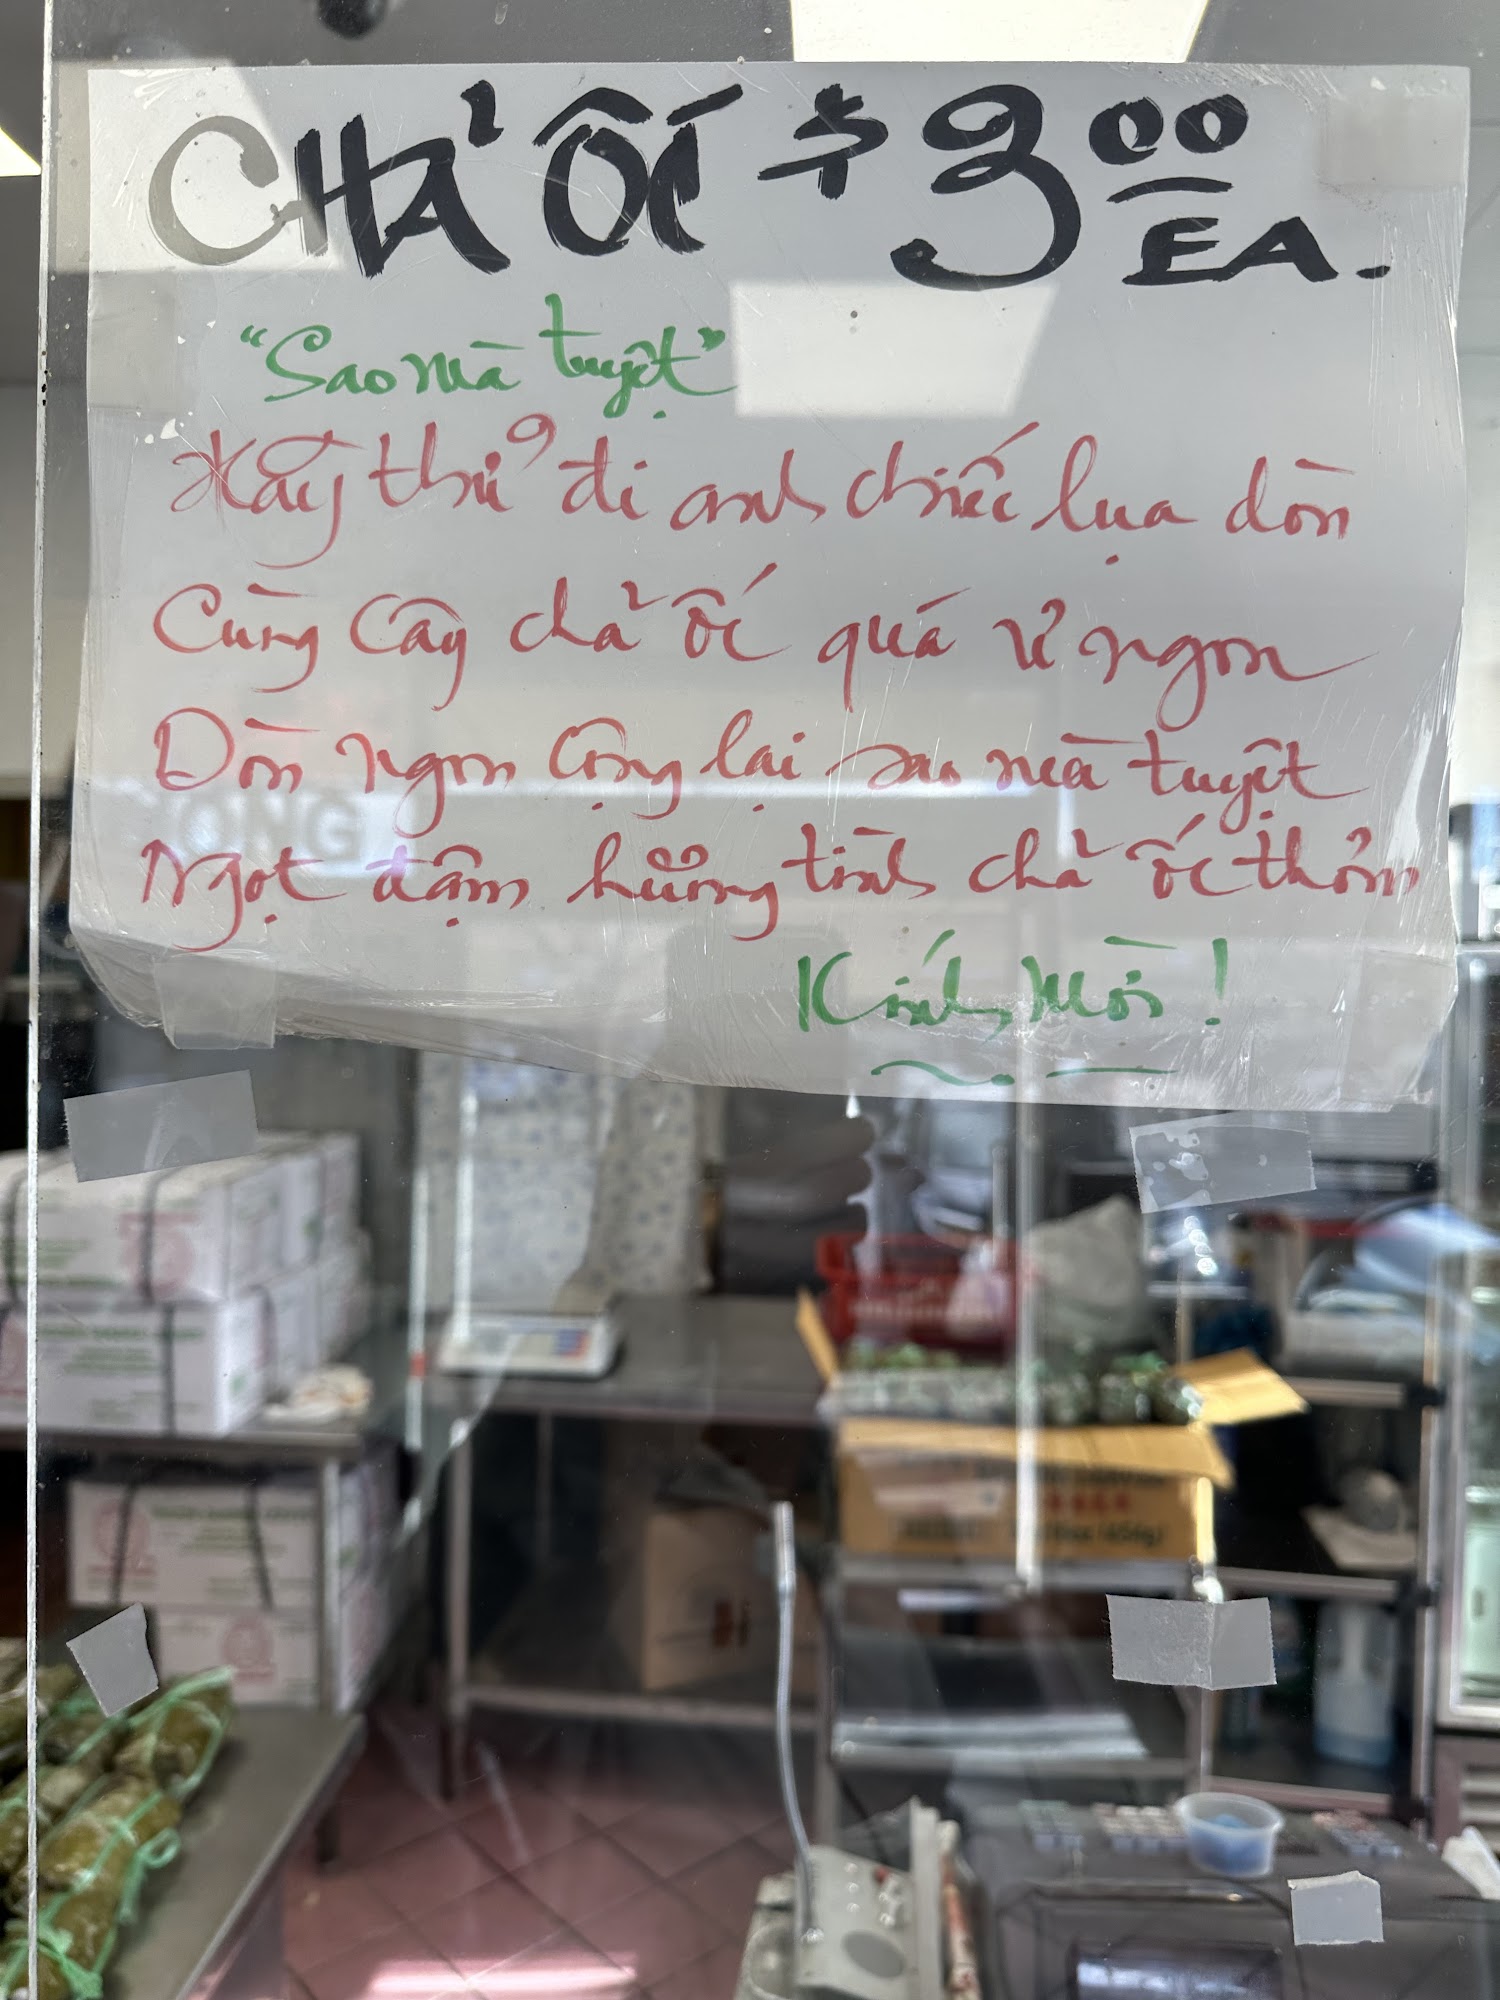 CHẢ ỐC $3.00 EA.
"Sao mà tuyệt"
Hãy thử đi anh chiếc lụa dòn
Cùng cây chả ốc quá ư ngon
Dòn ngon cộng lại sao mà tuyệt
Ngọt đậm hương tình chả ốc thơm
Kính Mời!
ONG